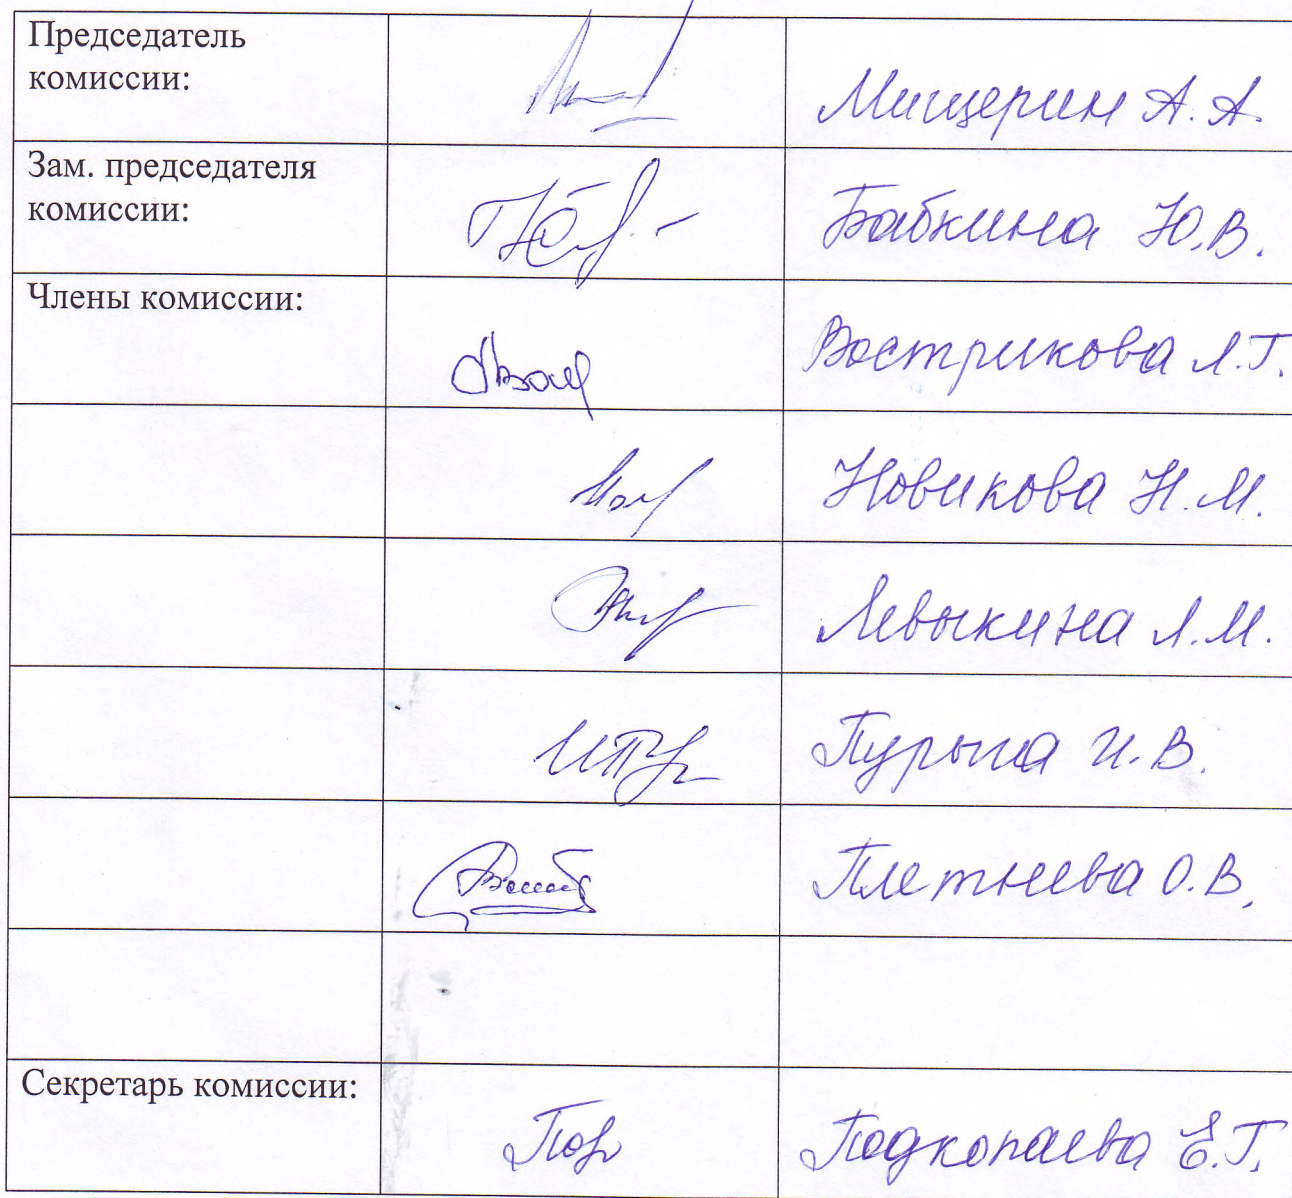 Председатель
комиссии:
Мищерин А.А.
Зам. председателя
комиссии:
Бабкина Ю.В.
Члены комиссии:
Вострикова Л.Г.
Новикова Н.М.
Левыкина Л.М.
Пурыга И.В.
Плетнева О.В.
Секретарь комиссии:
Подкопаева Е.Г.